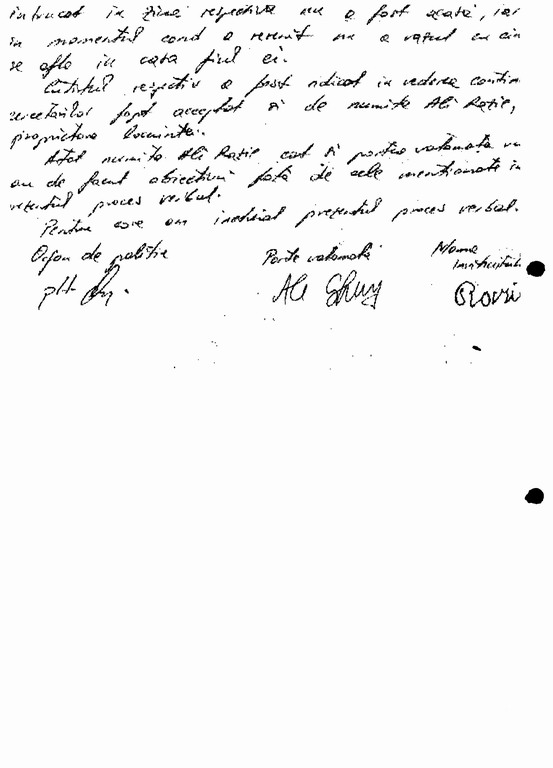 întrucat în ziua respectiva nu a fost acasă, iar
în momentul cand a revenit nu a vazut cu cin
se afla în casa fiul ei.
Cutitul respectiv a fost ridicat în vederea contin
cercetarilor fapt acceptat si de numita Ali Razie,
proprietara locuintei.
Atat numita Ali Razie cat si partea vatamata nu
au de facut obiectiuni fată de cele mentionate în
rezentul proces verbal.
Pentru care am incheiat prezentul proces verbal.
Organ de politie Parte vatamată Mama
invinuitului
plt Ali